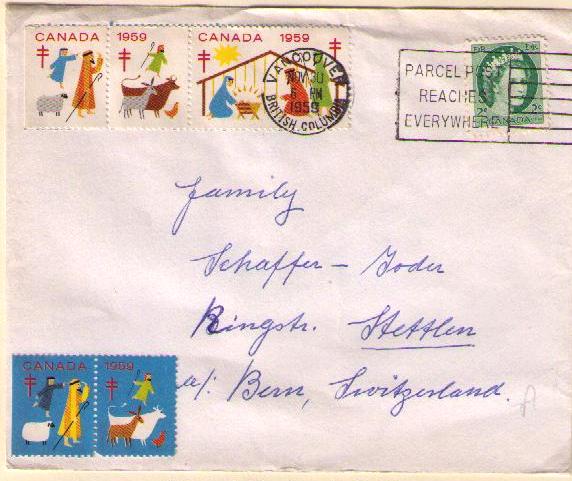 CANADA 1959 CANADA 1959
VANCOUVER
PM
1959
BRITISH COLUMBIA
PARCEL POST
REACHES
EVERYWHERE
2¢ 2¢
CANADA
Family
Schaffer - Joder
Ringstr. Stettlen
a/: Bern, Switzerland.
CANADA 1959